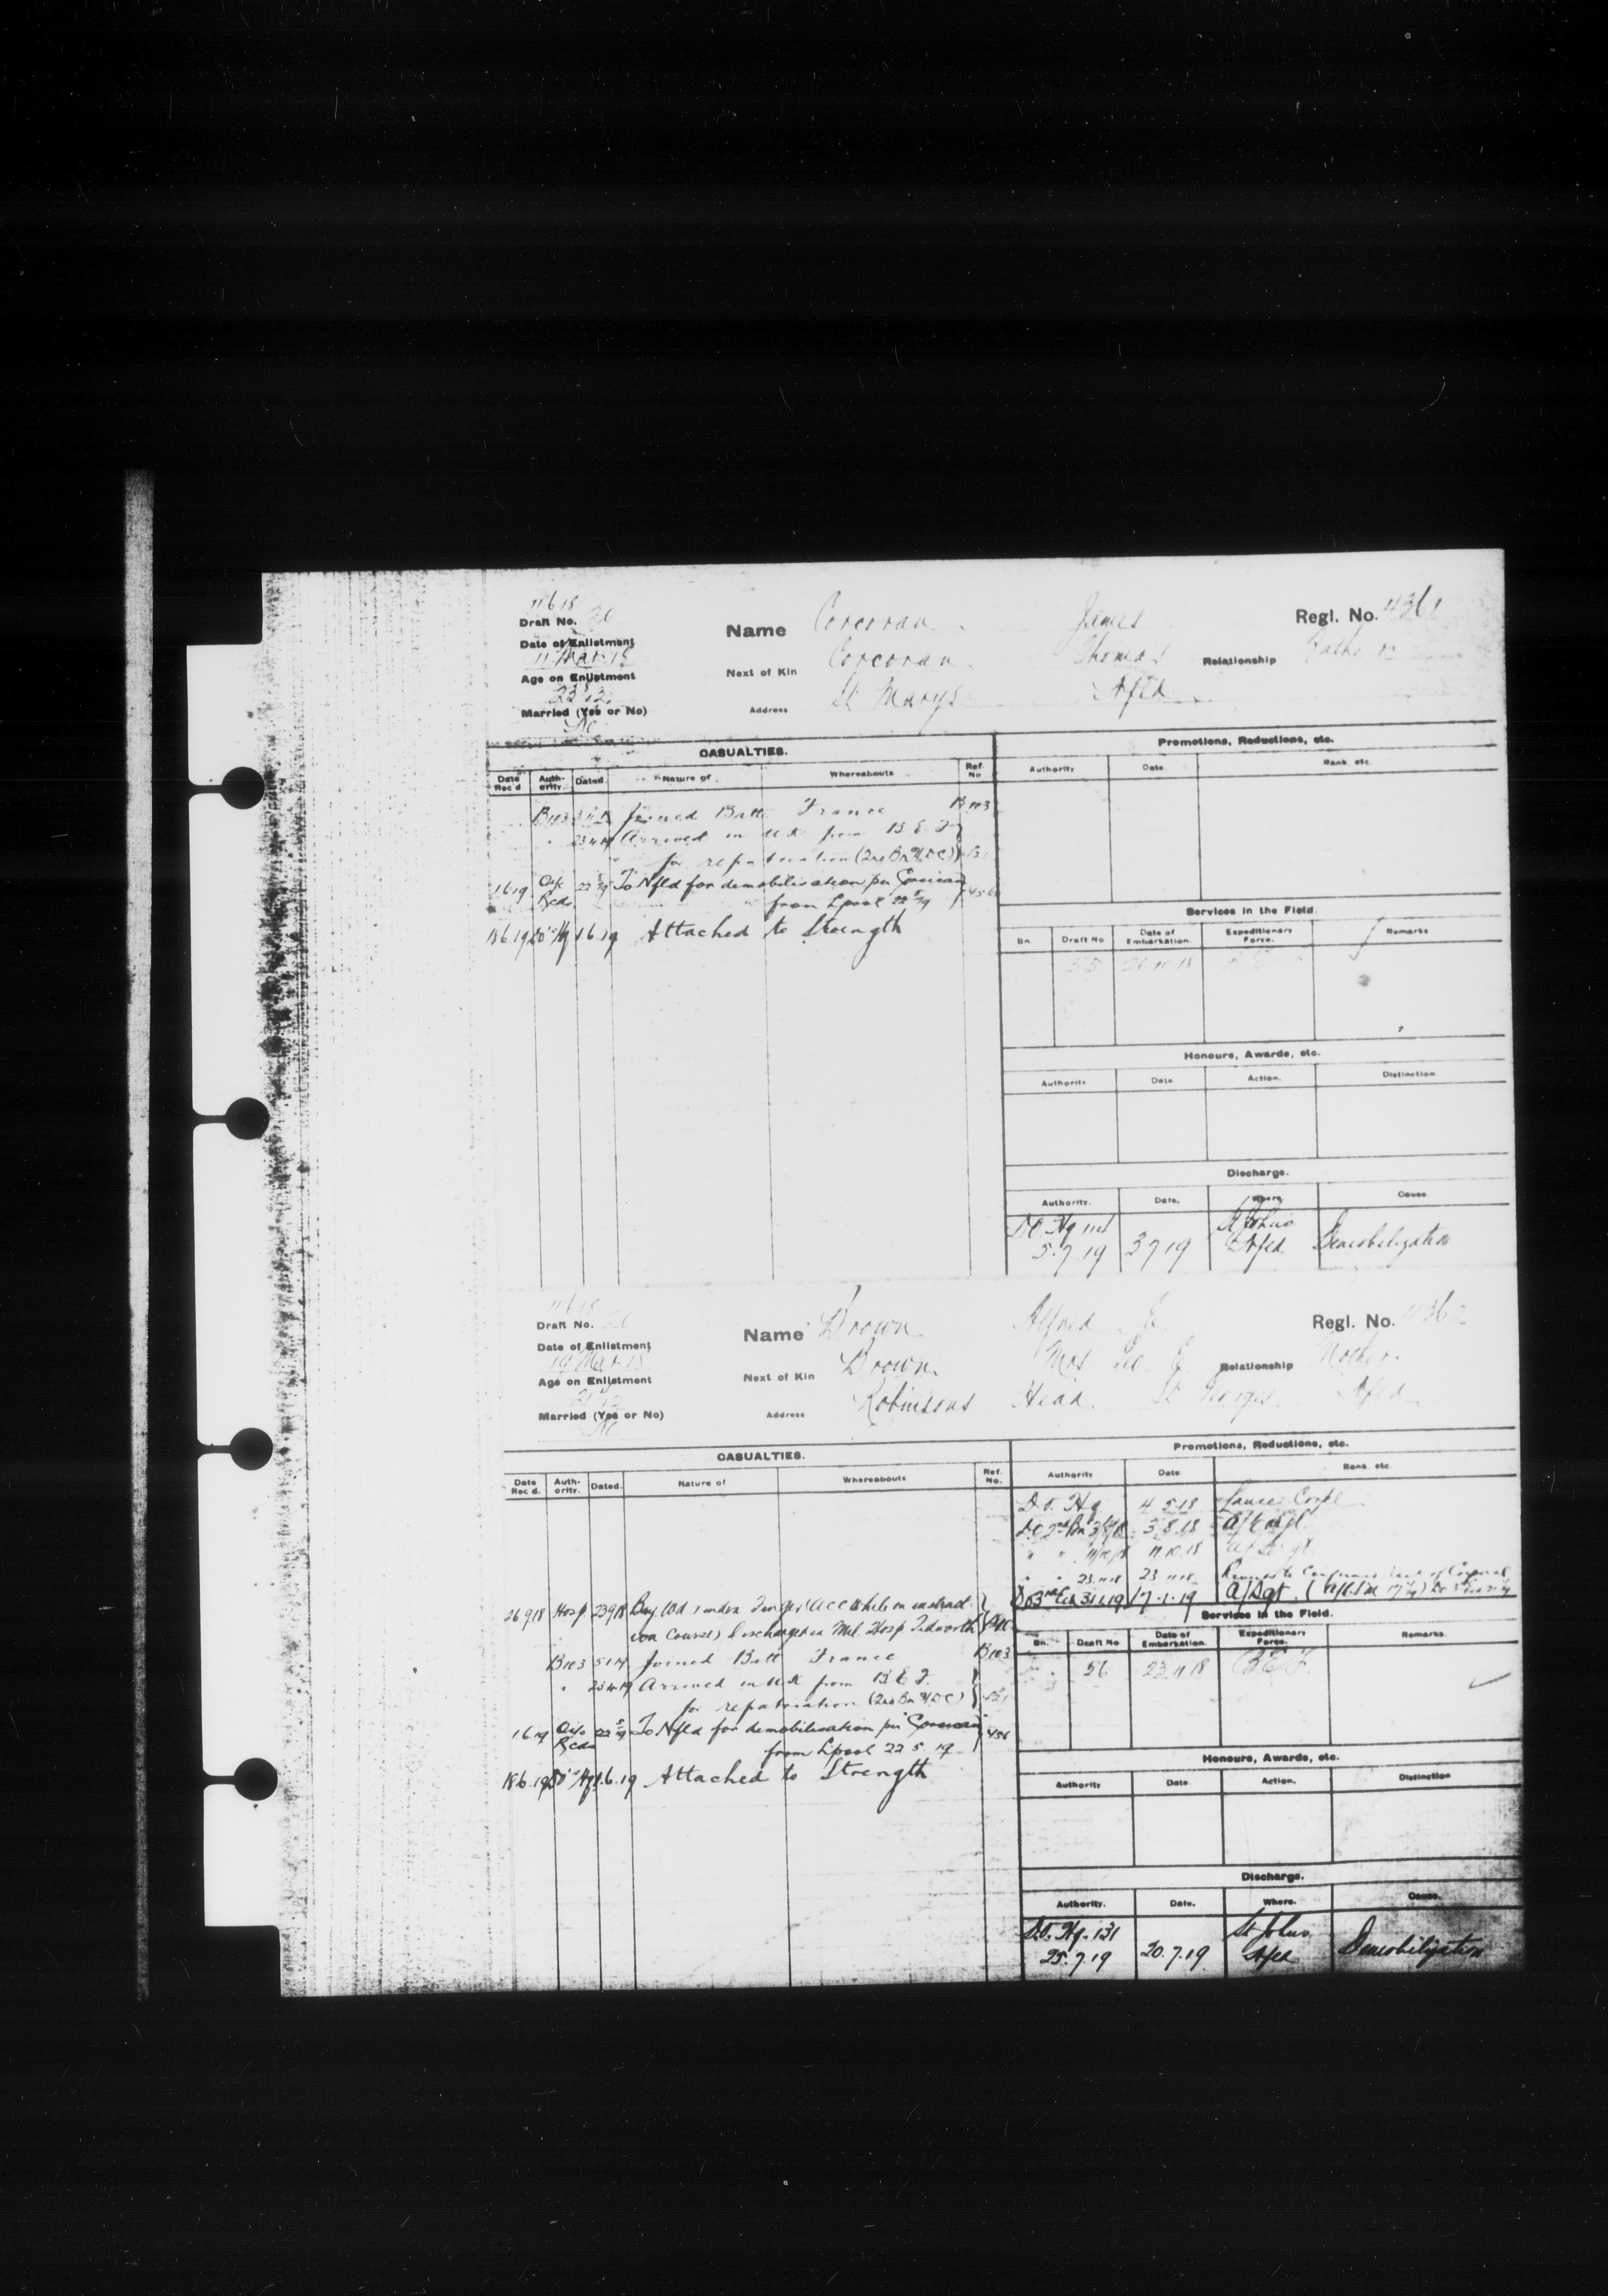 11 6 18
Draft No. 20
Name Corcoran James Regl. No. 4361
Date of Enlistment
11 Mar 18
Next of Kin Corcoran Thomas Relationship Father
Age on Enlistment
Address St Marys Nfld
Married (Yes or No)
No
CASUALTIES. Promotions, Reductions, etc.
Date Rec'd Auth-ority. Dated. Nature of Whereabouts Ref. No Authority Date. Rank. etc.
B103 Joined Batt France B103
" Arrived in UK from B E F
for repatriation (2nd Bn H.D.C)
1 6 19 22 5/19 To Nfld for demobilisation per Corsican
from Lpool 22 5/19
DO Hq 1 6 19 Attached to Strength
Services in the Field.
Bn. Draft No Date of Embarkation. Expeditionary Force. Remarks
55 18 B E F
Honours, Awards, etc.
Authority Date. Action. Distinction
Discharge.
Authority. Date. Where Cause
DO Hq
5.7.19 3 7 19 St Johns Nfld Demobilization
11 6 18
Draft No. 20
Name Brown Alfred J. Regl. No. 4362
Date of Enlistment
Mar 18
Next of Kin Brown Mrs J. Relationship Mother
Age on Enlistment
Address Robinsons Head St Georges Nfld
Married (Yes or No)
No
CASUALTIES. Promotions, Reductions, etc.
Date Rec'd. Auth-ority. Dated. Nature of Whereabouts Ref. No. Authority Date Rank. etc.
D.O. Hq 4 5 18 Lance Corpl
DO 2nd Bn 3 8 18 A/Corpl.
" " 11 10 18 A/Sergt.
" " 23 11 18 23 11 18 rank of Corporal
17.1.19 A/Sgt.
26 9 18 Hosp 23 9 18 Bay. Wd. index finger (Acc while on instruct
ion Course) Discharged ex Mil. Hosp Tidworth
B103 Joined Batt France B103
" Arrived in UK from B E F.
for repatriation (2nd Bn H.D.C)
1 6 19 22 5/19 To Nfld for demobilisation per Corsican 456
from Lpool 22 5 19
18 6 19 DO Hq 1.6.19 Attached to Strength
Services in the Field.
Bn. Draft No Date of Embarkation. Expeditionary Force. Remarks.
56 23 11 18 B E F.
Honours, Awards, etc.
Authority Date Action. Distinction
Discharge.
Authority. Date. Where. Cause.
D.O. Hq. 131
25.7.19 20.7.19 St Johns Nfld Demobilization